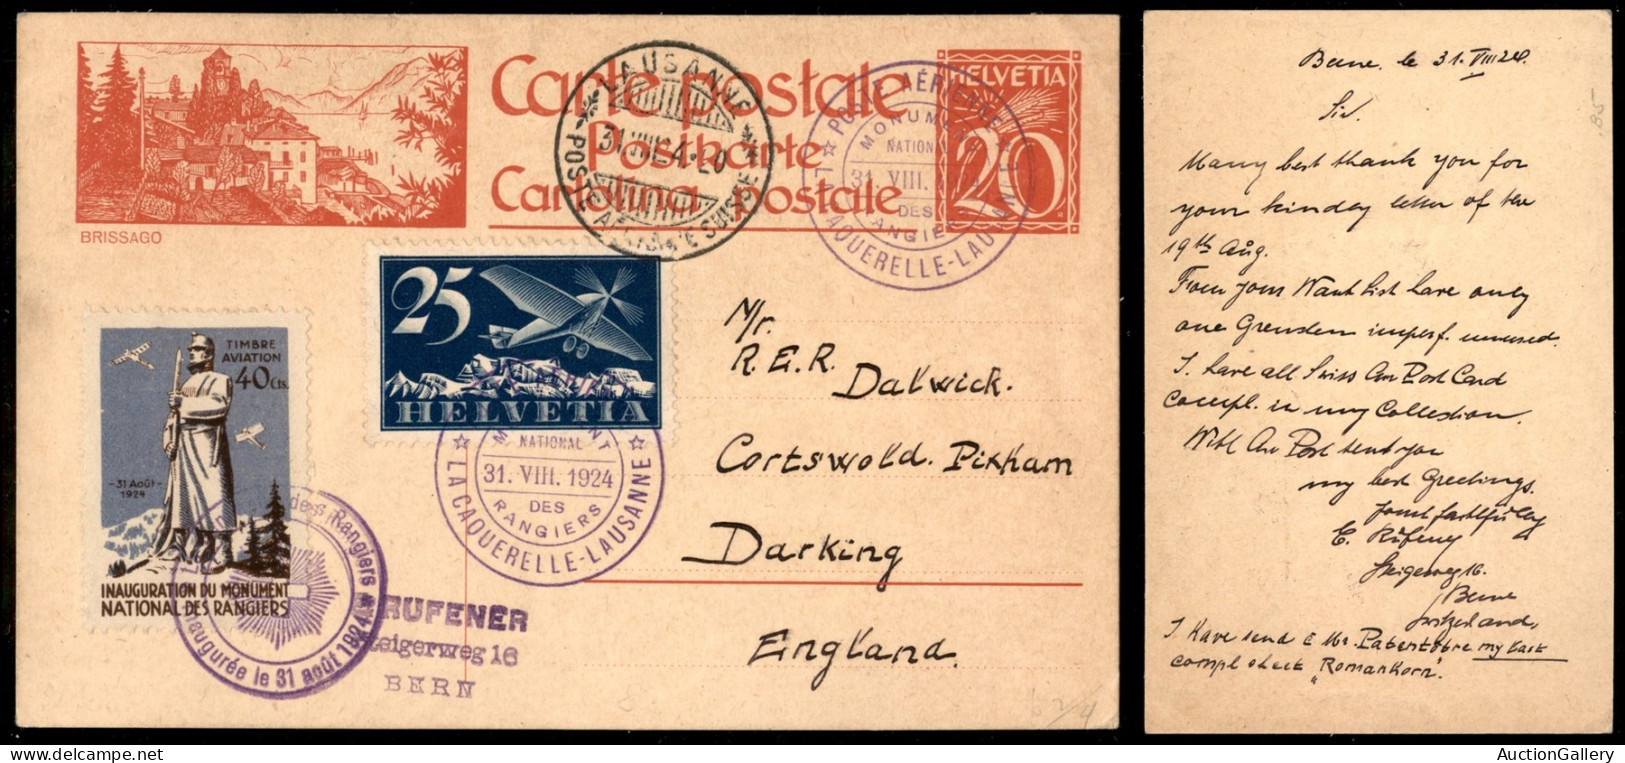 BRISSAGO
Carte postale
Postkarte
Cartolina postale
HELVETIA
20
LAUSANNE
31.VIII.24.-20
POSTE AÉRIENNE SUISSE
POSTE AÉRIENNE
MONUMENT
NATIONAL
31. VIII. 1924
DES
RANGIERS
LA CAQUERELLE-LAUSANNE
25
HELVETIA
MONUMENT
NATIONAL
31. VIII. 1924
DES
RANGIERS
LA CAQUERELLE-LAUSANNE
TIMBRE
AVIATION
40 Cts.
-31 Août-
1924
INAUGURATION DU MONUMENT
NATIONAL DES RANGIERS
des Rangiers
inaugurée le 31 août 1924
RUFENER
teigerweg 16
BERN
M/r.
R.E.R. Dalwick.
Cortswold. Pixham
Darking
England.
Berne. le 31. VIII 24.
Sir.
Many best thank you for
your kindey letter of the
19th Aug.
From your Want list have only
one Grenden imperf. unused.
I have all Swiss Air Post Card
Compl. in my Collection.
With Air Post send you
my best Greetings.
Yours faithfully
E. Rüfener
Steigerweg 16.
Berne
Switzerland.
I Have send Mr. my last
compl sheet "Romankorn".
AuctionGallery